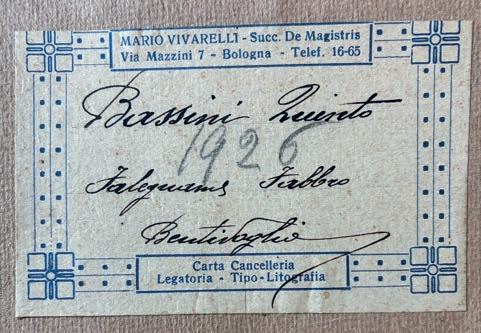 MARIO VIVARELLI - Succ. De Magistris
Via Mazzini 7 - Bologna - Telef. 16-65
Bassini Quinto
1926
Falegname Fabbro
Bentivoglio
Carta Cancelleria
Legatoria - Tipo-Litografia